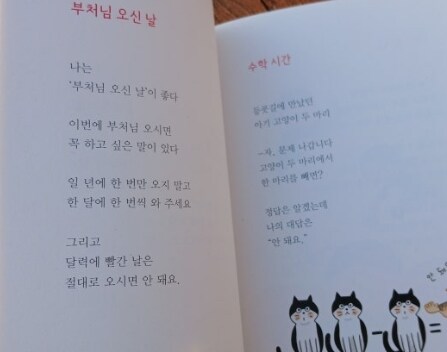 부처님 오신 날
나는
'부처님 오신 날'이 좋다
이번에 부처님 오시면
꼭 하고 싶은 말이 있다
일 년에 한 번만 오지 말고
한 달에 한 번씩 와 주세요
그리고
달력에 빨간 날은
절대로 오시면 안 돼요.
수학 시간
등굣길에 만났던
아기 고양이 두 마리
-자, 문제 나갑니다
고양이 두 마리에서
한 마리를 빼면?
정답은 알겠는데
나의 대답은
"안 돼요."
- =